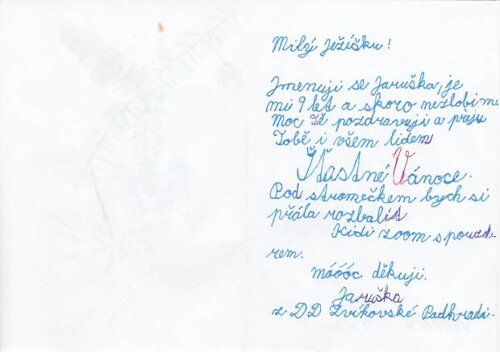 Milý Ježíšku!
Jmenuji se Jaruška, je
mi 9 let a skoro nezlobím.
Moc Tě pozdravuji a přeju
Tobě i všem lidem
Šťastné Vánoce.
Pod stromečkem bych si
přála rozbalit
Kidi zoom s pouzd-
rem.
móóóc děkuji.
Jaruška
z DD Zvíkovské Podhradí.